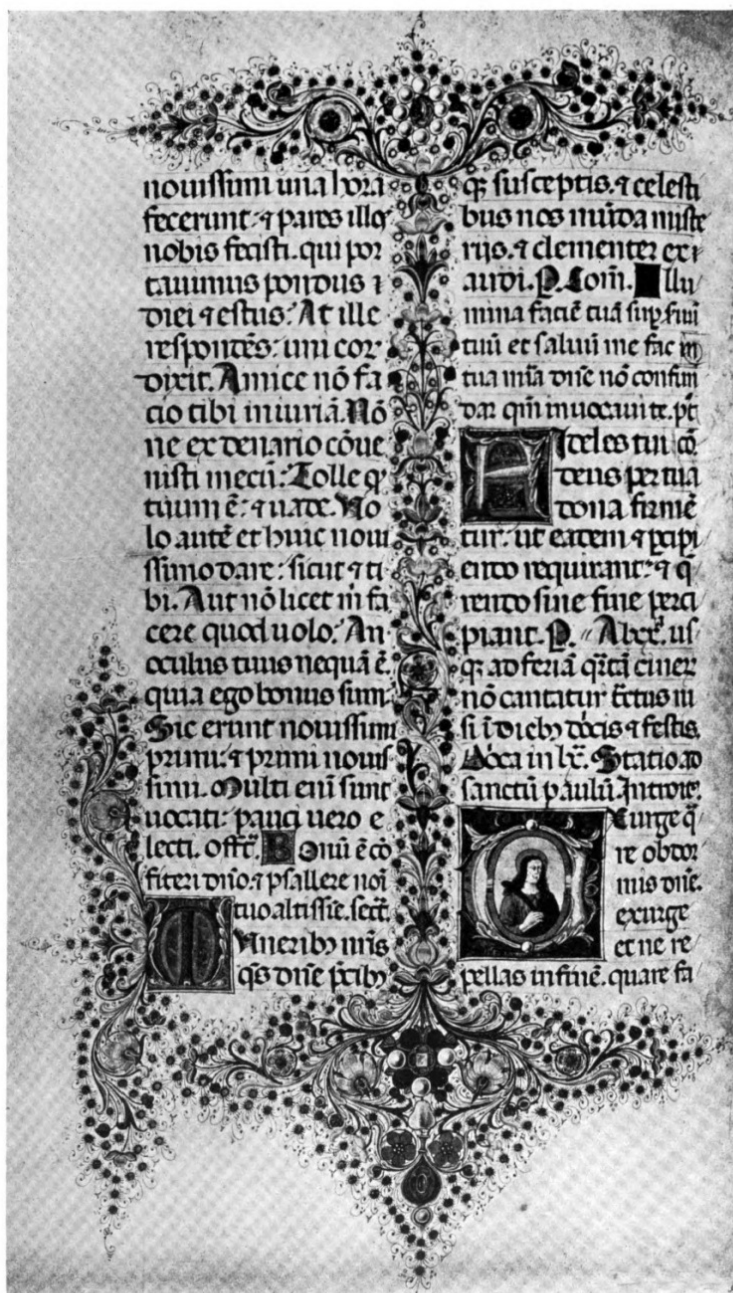 nouissimi una hora
fecerunt: ⁊ pares illoꝫ
nobis fecisti. qui por
tauimus pondus ⁊
diei ⁊ estus: At ille
respondēs: uni eor
dixit. Amice nō fa
cio tibi iniuriā. Nō
ne ex denario cōue
nisti mecū: Tolle qꝫ
tuum ē: ⁊ uade. Uo
lo autē et huic noui
ssimo dare: sicut ⁊ ti
bi. Aut nō licet m fa
cere quod uolo: An
oculus tuus nequā ē.
quia ego bonus sum:
Sic erunt nouissimi
primi: ⁊ primi nouis
simi. Multi enī sunt
uocati: pauci uero e
lecti. offr̄. Bonū ē cō
fiteri dn̄o. ⁊ psallere noī
tuo altissie. secr̄.
Muneribꝫ nr̄is
qs dn̄e p̄cibꝫ
qꝫ susceptis. ⁊ celesti
bus nos mūda miste
rijs. ⁊ clementer ex
audi. P. Com̄. Illu
mina faciē tuā sup̄ seruū
tuū et saluū me fac in
tua mīa dn̄e nō confun
dar qm̄ inuocaui te. p̄c
Fideles tui cō.
deus per tua
dona firmē
tur: ut eadem ⁊ p̄cipi
endo requirant: ⁊ q̄
rendo sine fine perci
piant. P. Ab us
qꝫ ad feriā q̄rtā ciner
nō cantatur tr̄ctus ni
si ī diebꝫ dōcis ⁊ festis.
Dōca in lx̄. Statio ad
sanctū paulū. Introit.
Exurge q̄
re obdor
mis dn̄e.
exurge
et ne re
pellas in finē. quare fa